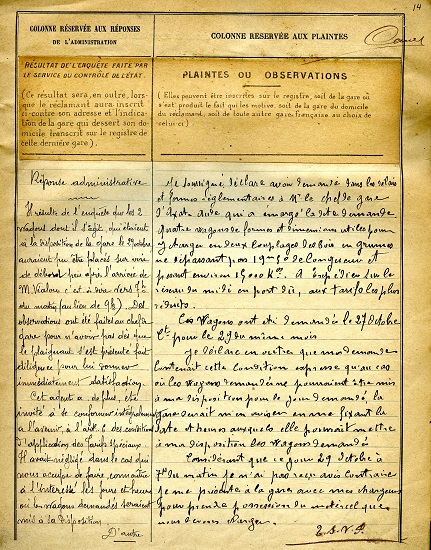 14
COLONNE RÉSERVÉE AUX RÉPONSES
DE L'ADMINISTRATION
COLONNE RÉSERVÉE AUX PLAINTES
RÉSULTAT DE L'ENQUÊTE FAITE PAR
LE SERVICE DU CONTRÔLE DE L'ÉTAT.
(Ce résultat sera, en outre, lors-
que le réclamant aura inscrit
ci-contre son adresse et l'indica-
tion de la gare qui dessert son do-
micile transcrit sur le registre de
cette dernière gare).
PLAINTES OU OBSERVATIONS
(Elles peuvent être inscrites sur le registre, soit de la gare où
s'est produit le fait qui les motive, soit de la gare du domicile
du réclamant, soit de toute autre gare française au choix de
celui-ci)
Réponse administrative
Il résulte de l'enquête que les 2
wagons dont il s'agit, qui étaient
à la disposition de la gare le
auraient pu être placés sur voie
de débord peu après l'arrivée de
M. c'est à dire vers 7h
du matin (au lieu de 9h). Des
observations ont été faites au chef de
gare pour n'avoir pas dès que
le plaignant s'est présenté fait
diligence pour lui donner
immédiatement satisfaction.
Cet agent a, de plus, été
invité à se conformer
à l'avenir, à l'art. des conditions
d'application des Tarifs spéciaux.
Il avait négligé dans le cas qui
nous occupe de faire connaître
à l'intéressé les jour et heure
où les wagons demandés seraient
mis à sa disposition.
D'autre
Je soussigné déclare avoir demandé dans les délais
et formes réglementaires à Mr le chef de gare
d' Aude qui a la dite demande
quatre wagons de formes et dimensions utiles pour
y charger en deux couplages des bois en grumes
ne dépassant pas 19m de longueur et
pesant environ 15000 Ks. A Expédier sur le
réseau du midi en port dû, aux tarifs les plus
réduits.
Ces Wagons ont été demandés le 27 Octobre
Ct pour le 29 du même mois
Je déclare en outre que ma demande
Contenait cette Condition expresse qu'au cas
où les Wagons demandés ne pourraient être mis
à ma disposition pour le jour demandé, la
gare devait m'en aviser en me fixant la
date et heures auxquelles elle pourrait mettre
à ma disposition les Wagons demandés
Considérant que ce jour 29 Octobre à
7h du matin je n'ai pas reçu avis Contraire
je me présente à la gare avec mes chargeurs
pour prendre possession du matériel que
nous devons charger.
T.S.V.P.